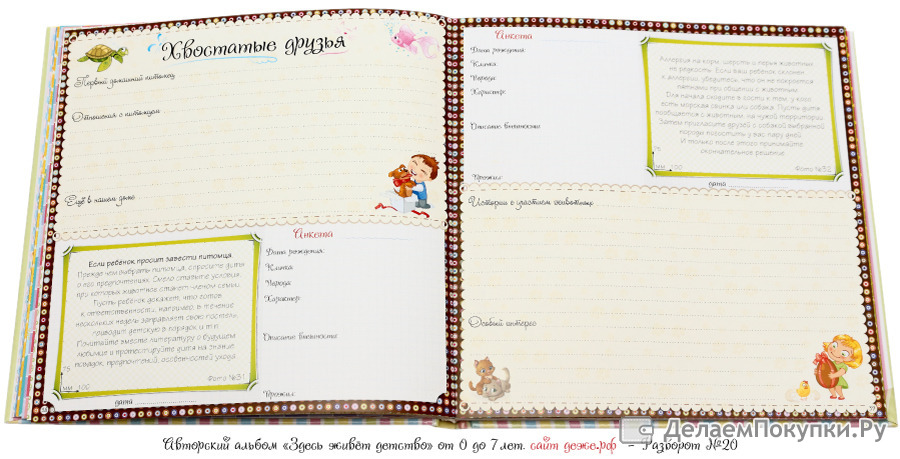 Хвостатые друзья
Первый домашний питомец
Отношения с питомцем
Ещё в нашем доме
Анкета
Если ребенок просит завести питомца.
Прежде чем выбрать питомца, спросите дитя
о его предпочтениях. Смело ставьте условия,
при которых животное станет членом семьи.
Пусть ребенок докажет, что готов
к ответственности, например, в течение
нескольких недель заправляет свою постель,
приводит детскую в порядок и т.п.
Почитайте вместе литературу о будущем
любимце и протестируйте дитя на знание
повадок, предпочтений, особенностей ухода.
75
мм 100
Фото №31
дата
Дата рождения:
Кличка:
Порода:
Характер:
Описание внешности:
Прожил:
Анкета
Дата рождения:
Кличка:
Порода:
Характер:
Описание внешности:
Прожил:
Аллергия на корм, шерсть и перья животных
не редкость. Если ваш ребенок склонен
к аллергии, убедитесь, что он не покроется
пятнами при общении с животным.
Для начала сходите в гости к тем, у кого
есть морская свинка или собака. Пусть дитя
пообщается с животным на чужой территории.
Затем пригласите друзей с собакой выбранной
породы погостить у вас пару дней.
И только после этого принимайте
окончательное решение.
75
мм 100
Фото №32
дата
Истории с участием животных
Особый интерес
Авторский альбом «Здесь живёт детство» от 0 до 7 лет. сайт деже.рф - Разворот №20
ДелаемПокупки.Ру